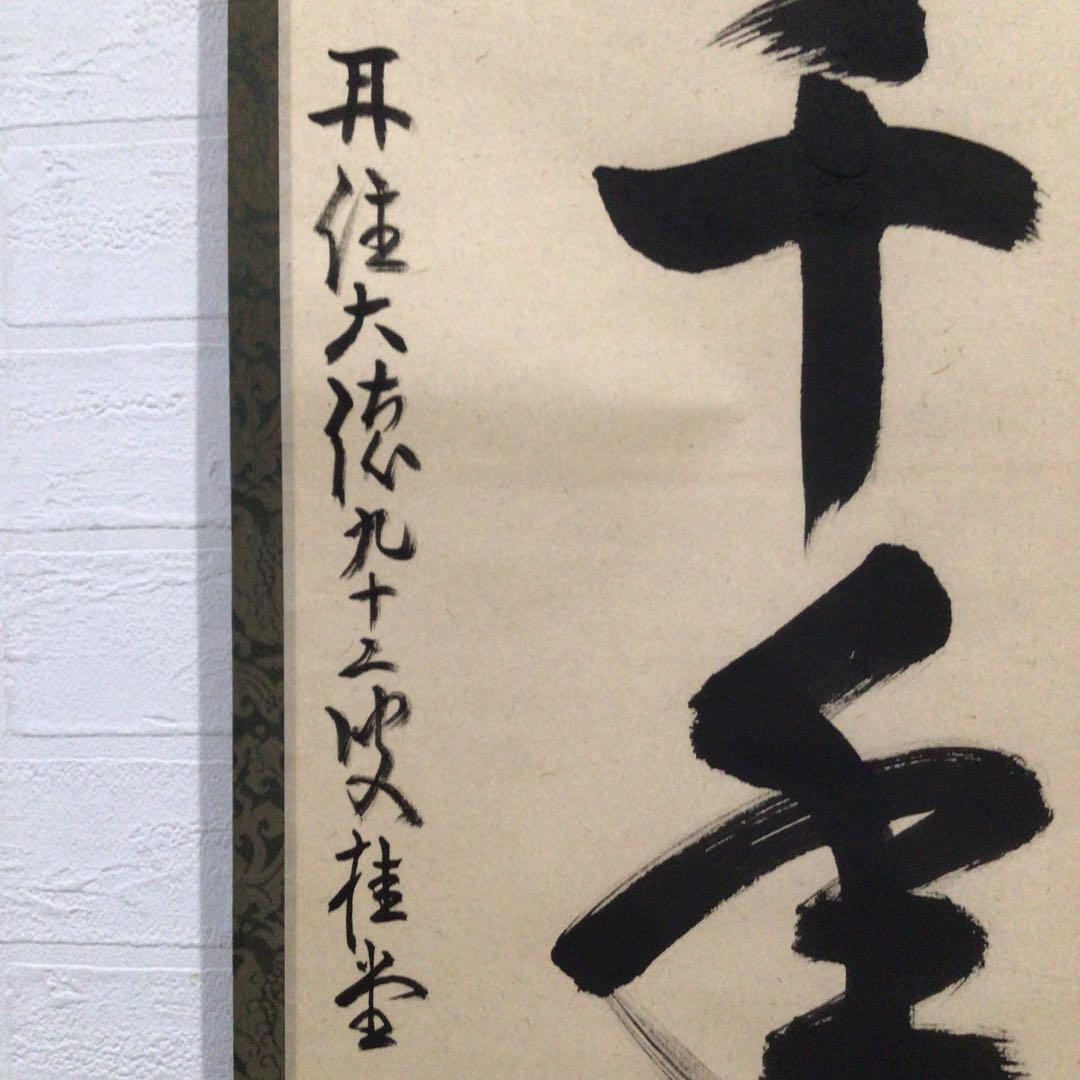 千金
再住大徳九十二叟桂堂